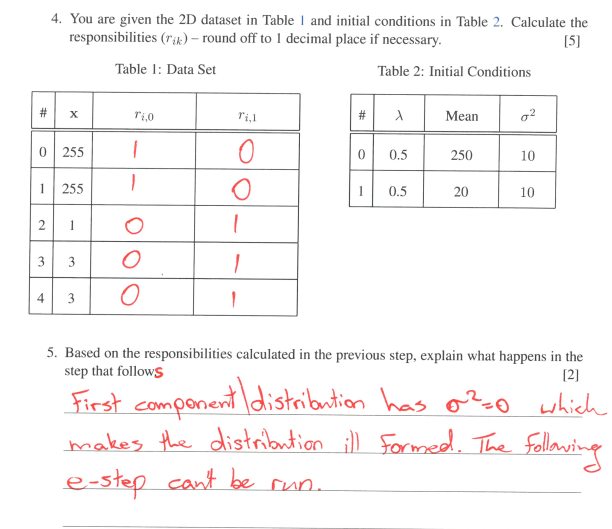 4. You are given the 2D dataset in Table 1 and initial conditions in Table 2. Calculate the
responsibilities (r_ik) – round off to 1 decimal place if necessary. [5]
Table 1: Data Set
# x r_i,0 r_i,1
0 255 1 0
1 255 1 0
2 1 0 1
3 3 0 1
4 3 0 1
Table 2: Initial Conditions
# λ Mean σ²
0 0.5 250 10
1 0.5 20 10
5. Based on the responsibilities calculated in the previous step, explain what happens in the
step that follows [2]
First component\distribution has σ²=0 which
makes the distribution ill formed. The following
e-step can't be run.